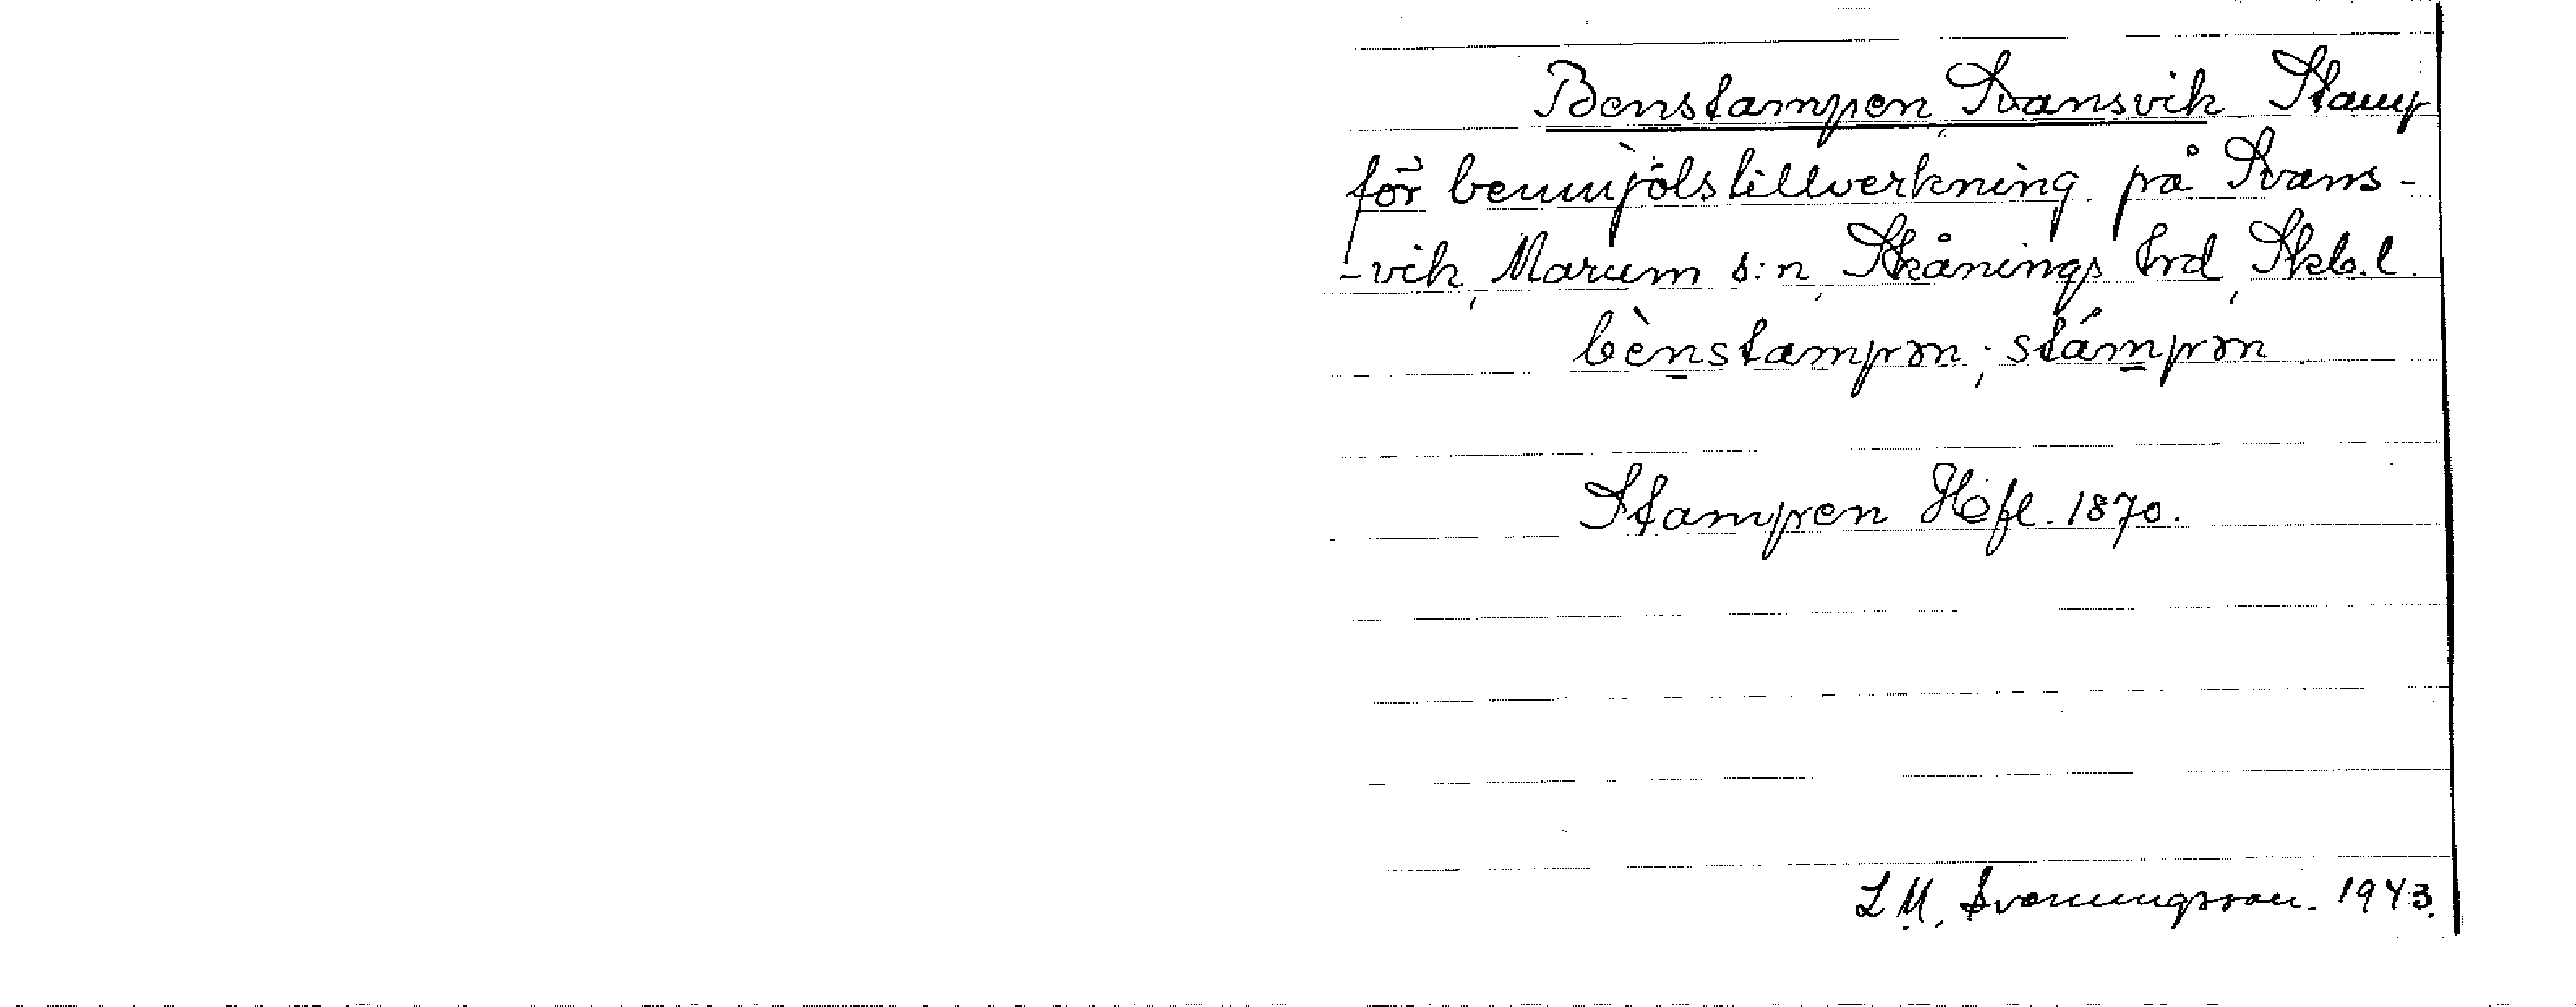 Benstampen, Svansvik Stamp
för benmjölstillverkning på Svans-
-vik, Marum s:n, Skånings hrd, Skb. l.
bènstampən; stámpən
Stampen Hfl. 1870.
L M. Svenungsson. 1943.